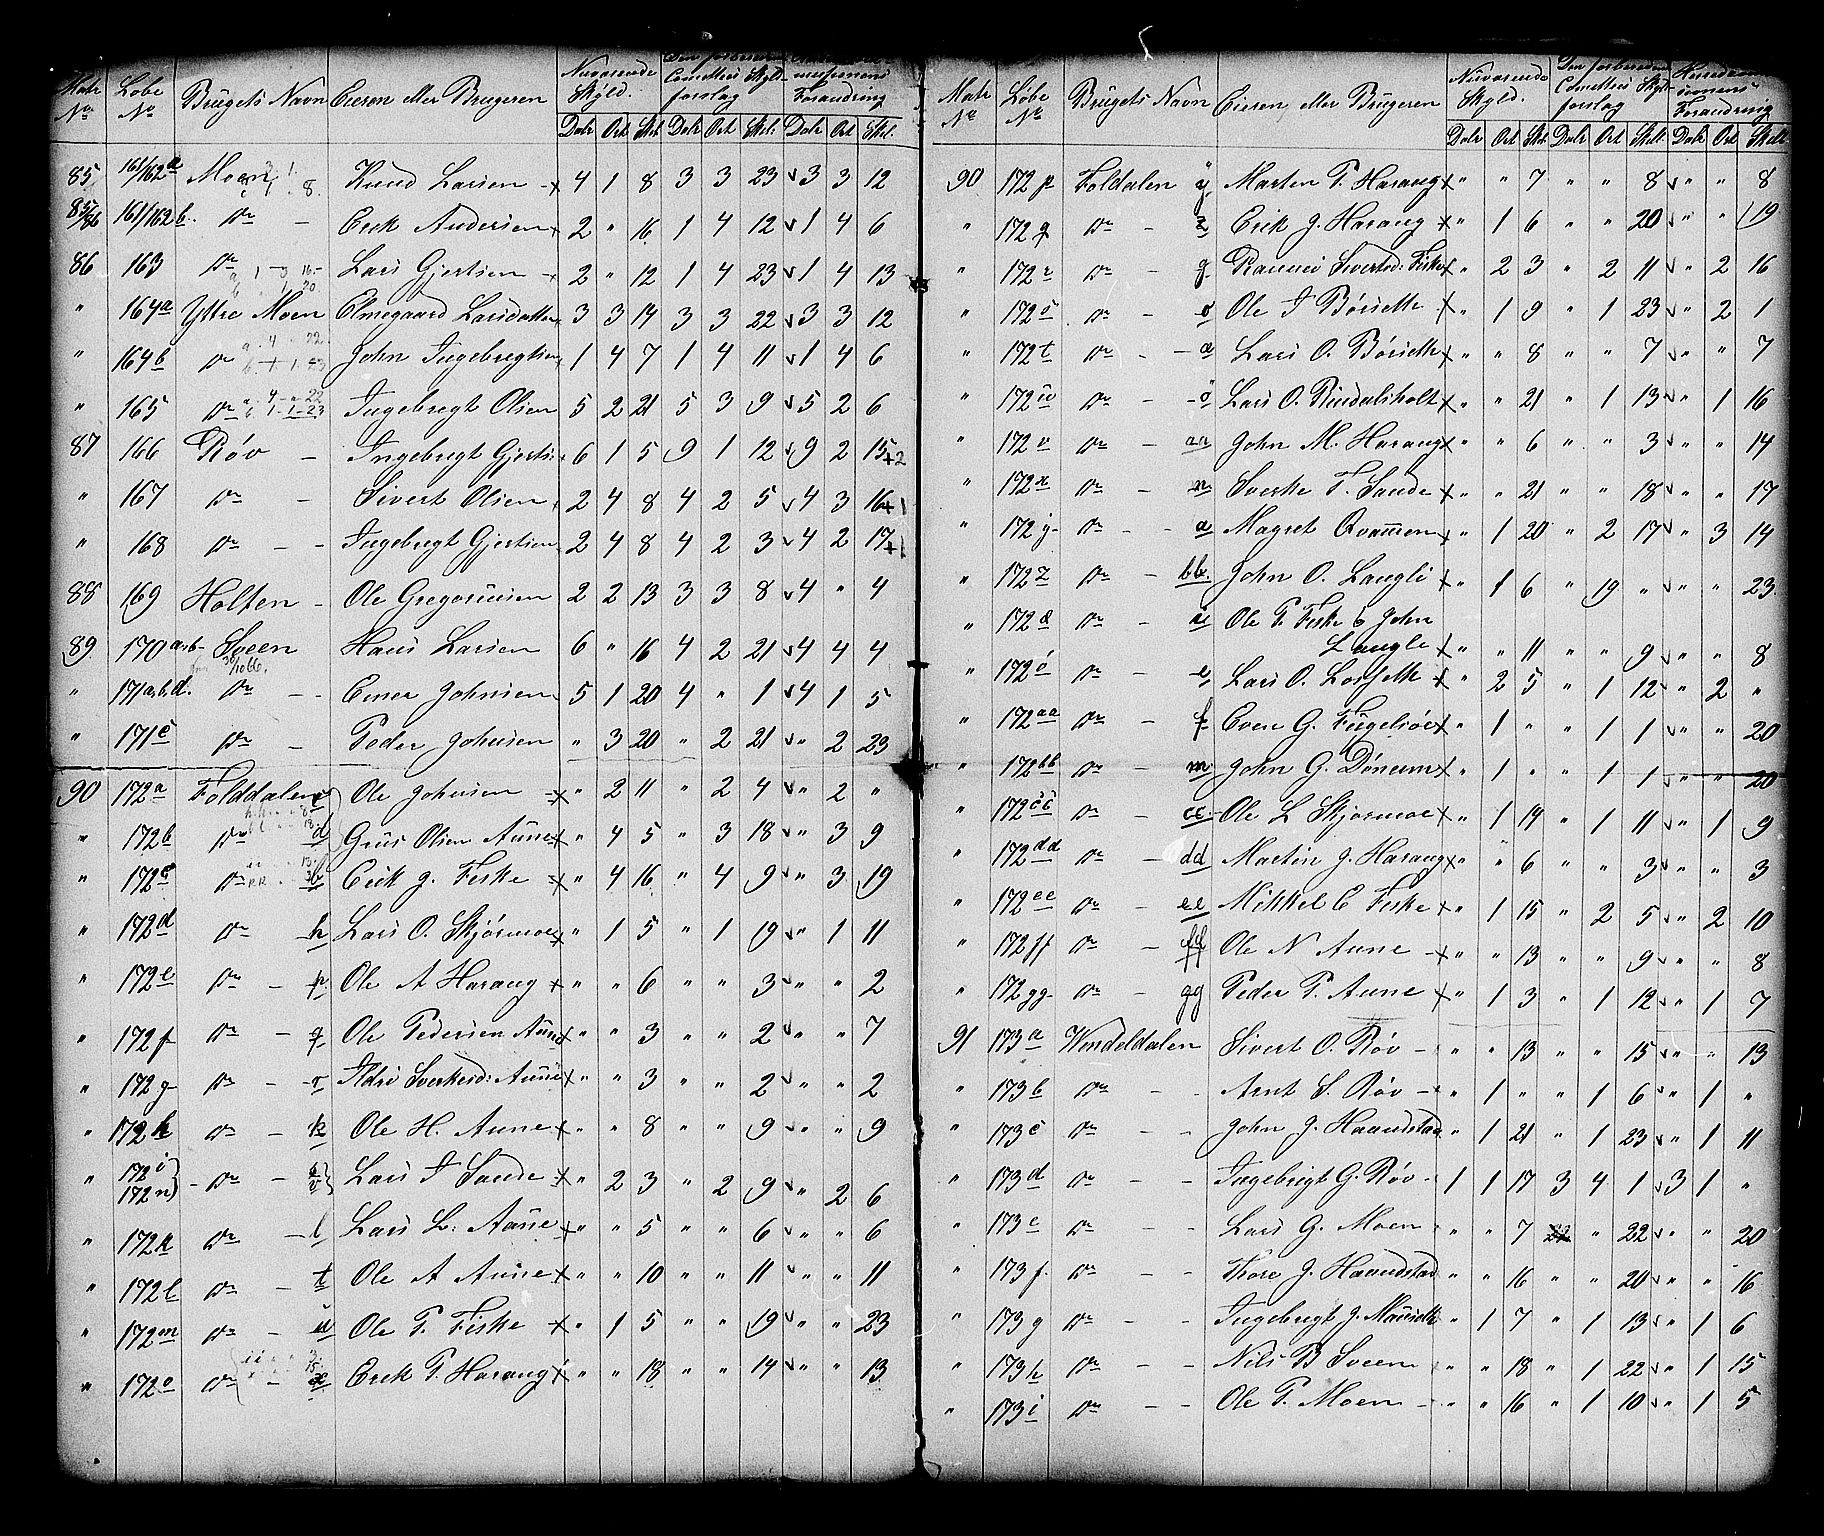 Matr No Løbe No Brugets Navn Eieren eller Brugeren Nuværende Skyld. Comitteens Skyld forslag Forandring
Dalr Ort Skl. Dalr Ort Skil. Dalr Ort Skl.
85 161/162a Moen Knud Larsen 4 1 8 3 3 23 3 3 12
85/86 161/162b. Do Erik Andersen 2 " 16 1 4 12 1 4 6
86 163 Do Lars Gjertsen 2 " 12 1 4 23 1 4 13
" 164a Yttre Moen Elmegaard Larsdatter 3 3 14 3 3 22 3 3 12
" 164b Do John Ingebregtsen 1 4 7 1 4 11 1 4 6
" 165 Do Ingebregt Olsen 5 2 21 5 3 9 5 2 6
87 166 Røv Ingebregt Gjertsen 6 1 5 9 1 12 9 2 15+2
" 167 Do Sivert Olsen 2 4 8 4 2 5 4 3 16+1
" 168 Do Ingebregt Gjertsen 2 4 8 4 2 3 4 2 17+1
88 169 Holten Ole Gregoriusen 2 2 13 3 3 8 4 " 4
89 170 a.b. Sveen Hans Larsen 6 " 16 4 2 21 4 4 4
" 171a.b.d. Do Einer Johnsen 5 1 20 4 " 1 4 1 5
" 171c Do Peder Johnsen " 3 20 " 2 21 " 2 23
90 172a Folddalen c Ole Johnsen " 2 11 " 2 4 " 2 "
" 172b Do d Grus Olsen Aune " 4 5 " 3 18 " 3 9
" 172c Do b Erik J. Fiske " 4 16 " 4 9 " 3 19
" 172d Do h Lars O. Skjørmoe " 1 5 " 1 19 " 1 11
" 172e Do p. Ole A Harang " " 6 " " 3 " " 2
" 172f Do q Ole Pedersen Aune " " 3 " " 2 " " 7
" 172g Do r Ildri Sverkersd: Aune " " 3 " " 2 " " 2
" 172h Do k Ole H. Aune " " 8 " " 9 " " 9
" 172i 172n Do Lars I Sande " 2 3 " 2 9 " 2 6
" 172k Do l Lars L. Aune " " 5 " " 6 " " 6
" 172l Do t Ole A Aune " " 10 " " 11 " " 11
" 172m Do u Ole P. Fiske " 1 5 " " 19 " " 23
" 172o Do x Erik P. Harang " " 18 " " 14 " " 13
Matr No Løbe No Brugets Navn Eieren eller Brugeren Nuværende Skyld. Den forberedende Comittees Skyld forslag Forandring
Dalr Ort Skl. Dalr Ort Skill. Dalr Ort Skill
90 172p Foldalen y Marten P. Harang " " 7 " " 8 " " 8
" 172q Do z Erik J. Harang " 1 6 " " 20 " " 19
" 172r Do g Sivertsd: Fiske " 2 3 " 2 11 " 2 16
" 172s Do Ole I Børseth " 1 9 " 1 23 " 2 1
" 172t Do Lars O. Børseth " " 8 " " 7 " " 7
" 172u Do Lars O. Rindalsholt " " 21 " 1 13 " 1 16
" 172v Do aa John M. Harang " " 6 " " 3 " " 14
" 172x Do n Sverke F. Sande " " 21 " " 18 " " 17
" 172y Do a Magret Qvammen " 1 20 " 2 17 " 3 14
" 172z Do bb. John O. Langli " 1 6 " 19 " " " 23
" 172æ Do Ole P. Fiske & John
Langli " " 11 " " 9 " " 8
" 172ø Do e Lars O. Losseth " 2 5 " 1 12 " 2 "
" 172aa Do f Even G. Fugelsøe " 1 " " 1 1 " " 20
" 172bb Do m John G. Dønnem " 1 " " 1 1 " " 20
" 172cc Do cc Ole L Skjørmoe " 1 19 " 1 11 " 1 9
" 172dd Do dd Martin J. Harang " " 6 " " 3 " " 3
" 172ee Do ee Mikkel E Fiske " 1 15 " 2 5 " 2 10
" 172ff Do ff Ole N Aune " " 13 " " 9 " " 8
" 172gg Do gg Peder P. Aune " 1 3 " 1 12 " 1 7
91 173a Wendeldalen Sivert O. Røv " " 13 " " 15 " " 13
" 173b Do Arnt S. Røv " 1 " " 1 6 " 1 "
" 173c Do John J. Haandstad " 1 21 " 1 23 " 1 11
" 173d Do Ingebrigt G. Røv 1 1 17 3 4 1 3 1 "
" 173e Do Lars G. Moen " " 7 " 22 " " 20
" 173f Do Tore J. Haandstad " " 16 " " 20 " " 16
" 173g Do Ingebrigt J. Mauseth " 1 7 " 1 13 " 1 6
" 173h Do Nils B Sveen " " 18 " 1 22 " 1 15
" 173i Do Ole P. Moen " " 16 " 1 10 " 1 5